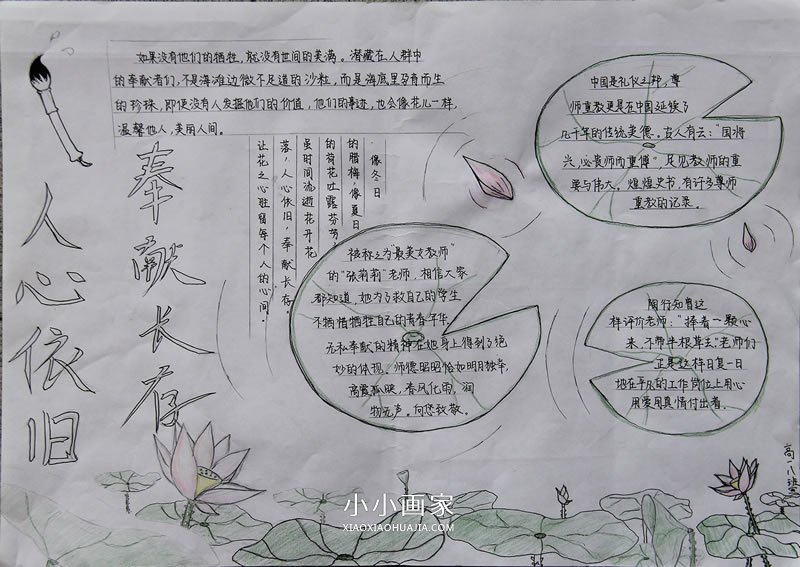 如果没有他们的牺牲，就没有世间的美满。潜藏在人群中
的奉献者们，不是海滩边微不足道的沙粒，而是海底里孕育而生
的珍珠，即便没有人发掘他们的价值，他们的事迹，也会像花儿一样，
温馨他人，美丽人间。
人心依旧
奉献长存
像冬日
的腊梅，像夏日
的荷花吐露芬芳，
虽时间流逝花开花
落，人心依旧，奉献长存。
让花之心驻留每个人的心间。
中国是礼仪之邦，尊
师重教更是在中国延续了
几千年的传统美德。古人有云：“国将
兴，必贵师而重傅”，足见教师的重
要与伟大。煌煌史书，有许多尊师
重教的记录。
被称之为“最美女教师”
的“张莉莉”老师，相信大家
都知道，她为了救自己的学生
不惜牺牲自己的青春年华，
无私奉献的精神在她身上得到了绝
妙的体现，师德昭昭恰如明月独幸，
高霞孤映，春风化雨，润
物无声。向您致敬。
陶行知曾这
样评价老师：“捧着一颗心
来，不带半根草去”老师们
正是这样日复一日
地在平凡的工作岗位上用心
用爱用真情付出着。
高一八班
小小画家
XIAOXIAOHUAJIA.COM